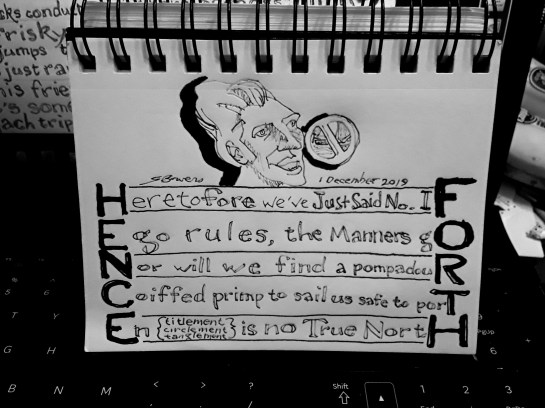 sks condu
rrisRy
jumps t
just ra
his frie
's som
ach trip
SBowers 1 December 2019
Heretofore we've Just Said No. IF
Ego rules, the Manners gO
Nor will we find a pompadouR
Coiffed primp to sail us safe to porT
En {titlement
circlement
tanglement} is no True NortH
T Y
G H
B N M < > ? Shift 1 2 3